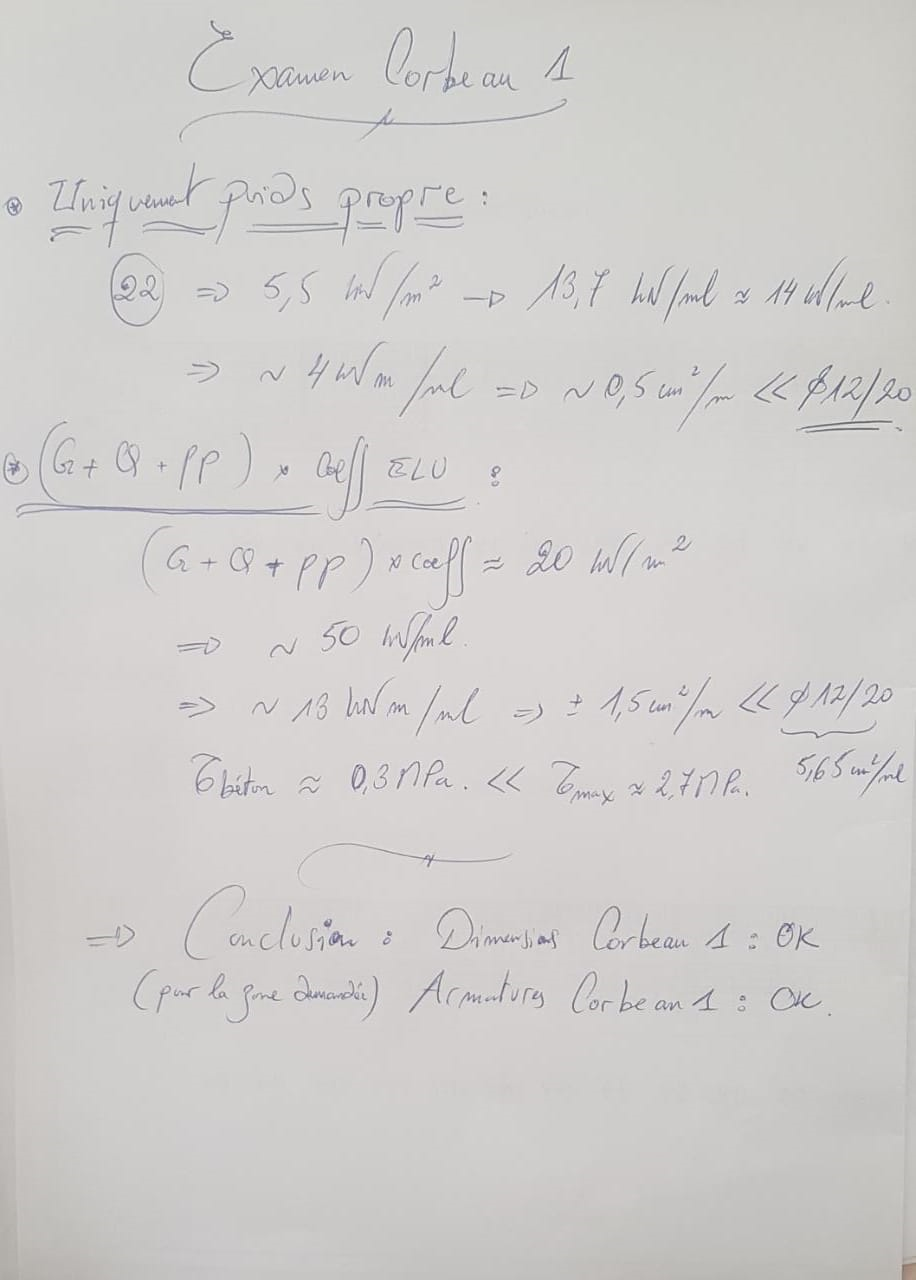 Examen Corbeau 1
Uniquement poids propre :
22 => 5,5 kN/m² -> 13,7 kN/ml ≈ 14 kN/ml.
=> ~ 4 kNm/ml => ~ 0,5 cm²/m << ϕ12/20.
(G + Q + PP) x Coeff ELU :
(G + Q + PP) x Coeff ≈ 20 kN/m²
=> ~ 50 kN/ml.
=> ~ 13 kNm/ml => ± 1,5 cm²/m << ϕ12/20
5,65 cm²/ml
τbéton ≈ 0,3 MPa. << τmax ≈ 2,7 MPa.
=> Conclusion : Dimensions Corbeau 1 : OK
(pour la zone demandée) Armatures Corbeau 1 : OK.